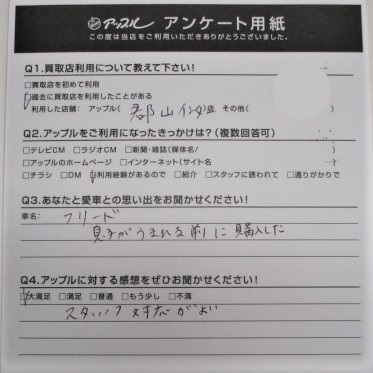 アップル アンケート用紙
この度は当店をご利用いただきありがとうございました。
Q1.買取店利用について教えて下さい!
□買取店を初めて利用
□過去に買取店を利用したことがある
利用した店舗: アップル( 郡山インター店 その他( )
Q2.アップルをご利用になったきっかけは?(複数回答可)
□テレビCM □ラジオCM □新聞・雑誌(媒体名/ )
□アップルのホームページ □インターネット(サイト名 )
□チラシ □DM □利用経験があるので □紹介 □スタッフに誘われて □通りがかりで
Q3.あなたと愛車との思い出をお聞かせください!
車名: フリード
息子がうまれる前に購入した
Q4.アップルに対する感想をぜひお聞かせください!
□大満足 □満足 □普通 □もう少し □不満
スタッフ対応がよい